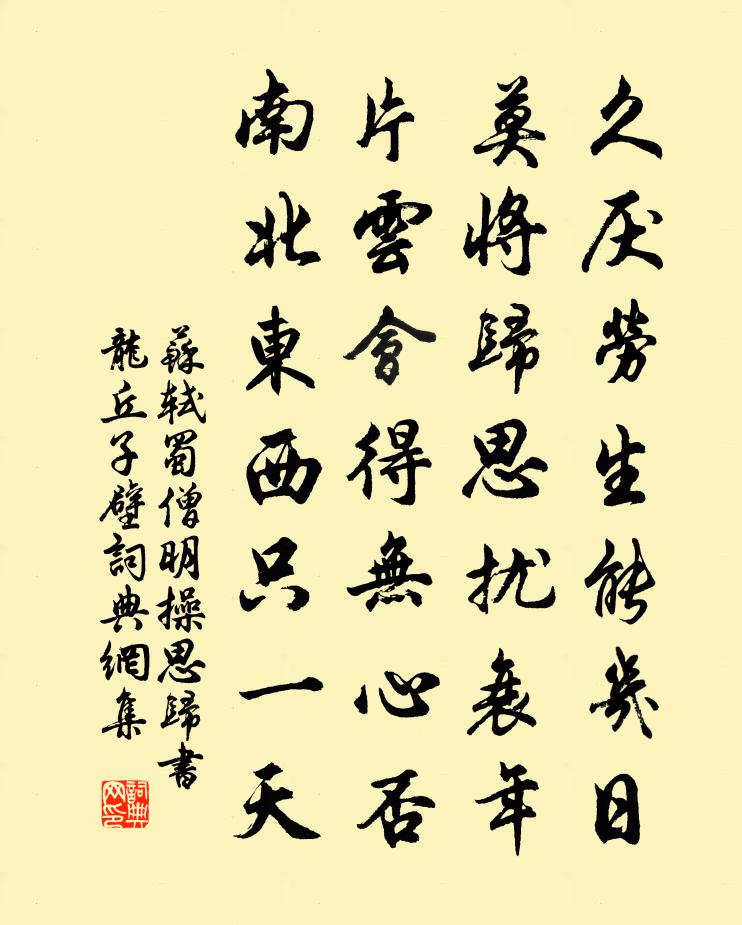 久厌勞生能幾日
莫將歸思扰衰年
片雲會得無心否
南北東西只一天
蘇軾蜀僧明操思歸書
龍丘子壁詞典網集
詞典网印